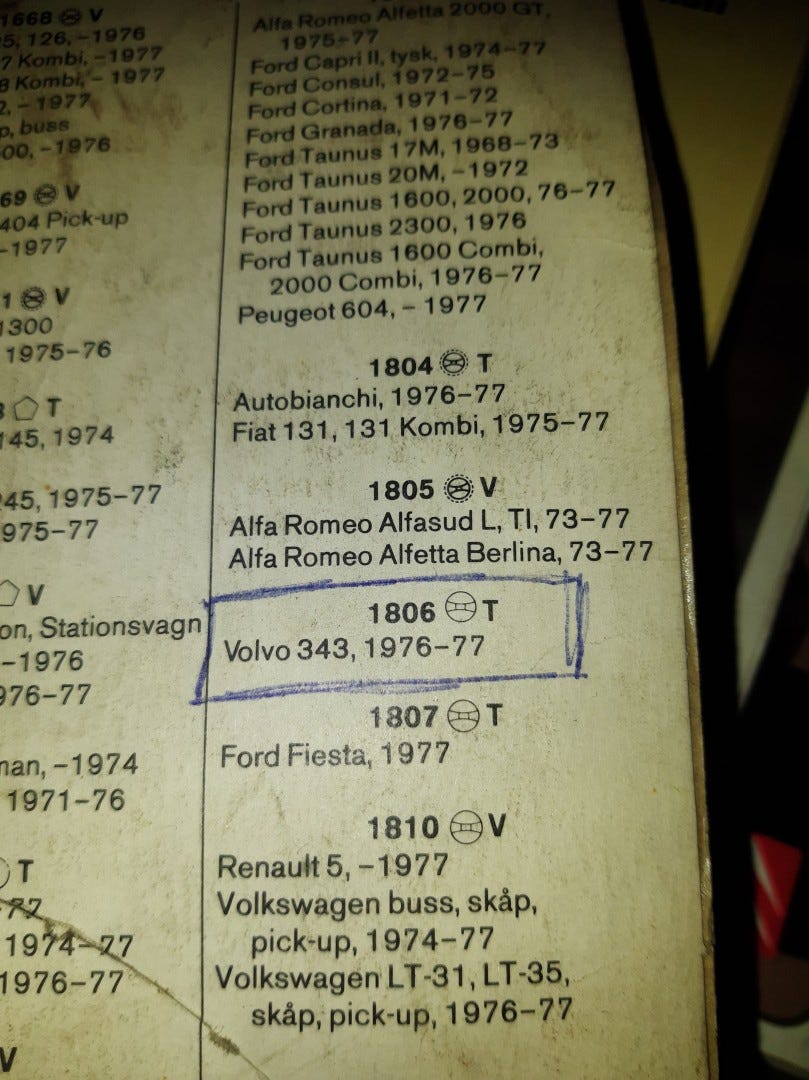 1668 V
126, -1976
Kombi, -1977
Kombi, - 1977
- 1977
buss
-1976
69 V
404 Pick-up
-1977
1 V
1300
1975-76
T
145, 1974
245, 1975-77
975-77
V
on, Stationsvagn
-1976
976-77
man, -1974
1971-76
T
-77
1974-77
1976-77
V
Alfa Romeo Alfetta 2000 GT,
1975-77
Ford Capri II, tysk, 1974-77
Ford Consul, 1972-75
Ford Cortina, 1971-72
Ford Granada, 1976-77
Ford Taunus 17M, 1968-73
Ford Taunus 20M, -1972
Ford Taunus 1600, 2000, 76-77
Ford Taunus 2300, 1976
Ford Taunus 1600 Combi,
2000 Combi, 1976-77
Peugeot 604, - 1977
1804 T
Autobianchi, 1976-77
Fiat 131, 131 Kombi, 1975-77
1805 V
Alfa Romeo Alfasud L, TI, 73-77
Alfa Romeo Alfetta Berlina, 73-77
1806 T
Volvo 343, 1976-77
1807 T
Ford Fiesta, 1977
1810 V
Renault 5, -1977
Volkswagen buss, skåp,
pick-up, 1974-77
Volkswagen LT-31, LT-35,
skåp, pick-up, 1976-77